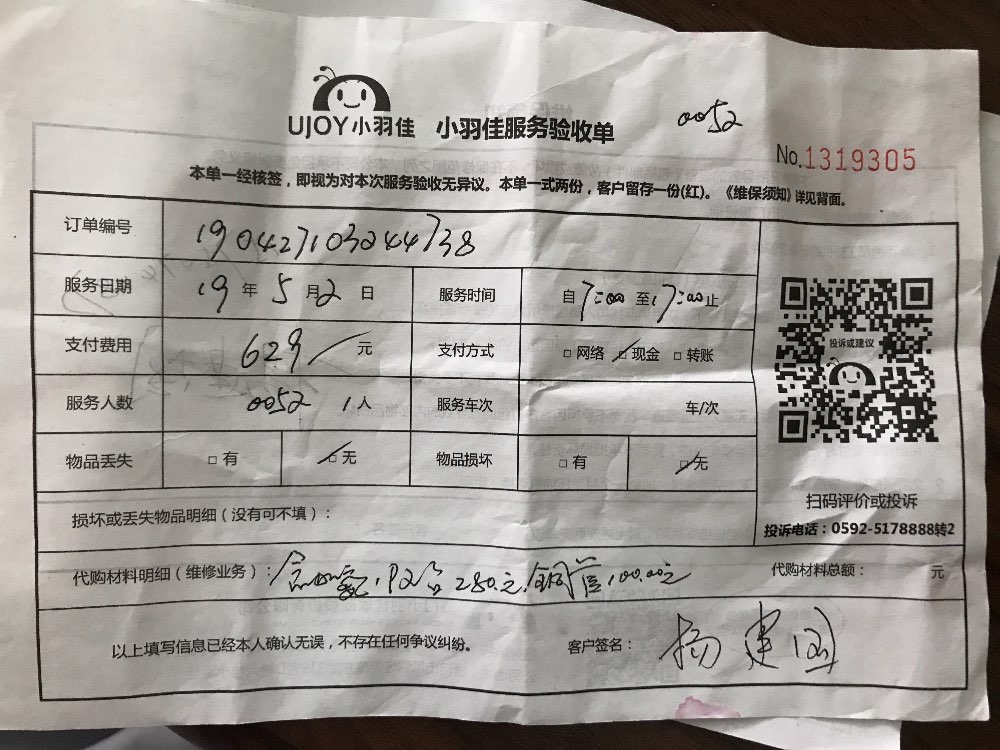 UJOY小羽佳 小羽佳服务验收单
0052
No.1319305
本单一经核签，即视为对本次服务验收无异议。本单一式两份，客户留存一份(红)。《维保须知》详见背面。
订单编号 190427103244738
服务日期 19 年 5 月 2 日 服务时间 自 7:00 至 17:00 止
支付费用 629 元 支付方式 □ 网络 □ 现金 □ 转账
服务人数 0052 1 人 服务车次 车/次
物品丢失 □ 有 □ 无 物品损坏 □ 有 □ 无
投诉或建议
扫码评价或投诉
投诉电话：0592-5178888转2
损坏或丢失物品明细（没有可不填）：
代购材料明细（维修业务）： 280.元 铜管 100.00元 代购材料总额： 元
以上填写信息已经本人确认无误，不存在任何争议纠纷。 客户签名： 杨建国